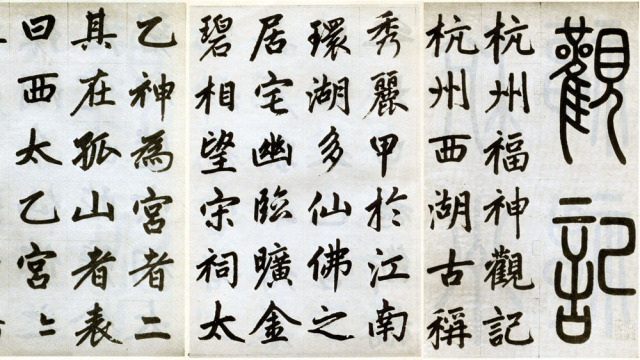 觀記
杭州福神觀記
杭州西湖古稱
秀麗甲於江南
環湖多仙佛之
居宅幽臨曠金
碧相望宋祠太
乙神為宮者二
其在孤山者表
曰西太乙宮〻